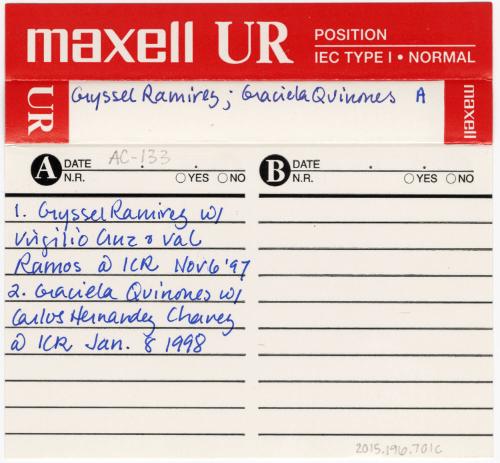 maxell UR POSITION
IEC TYPE I • NORMAL
UR
Gryssel Ramirez; Graciela Quinones A
maxell
A DATE AC-133
N.R. YES NO
B DATE
N.R. YES NO
1. Gryssel Ramirez w/
Virgilio Cruz & Val
Ramos @ ICR Nov 6 '97
2. Graciela Quinones w/
Carlos Hernandez Chavez
@ ICR Jan. 8 1998
2015.196.701c